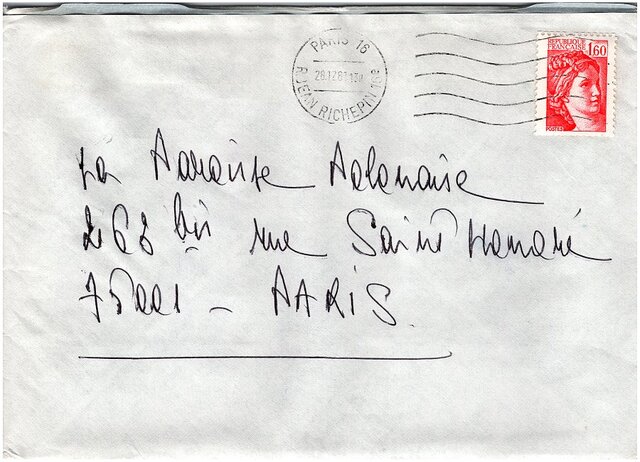 PARIS 16
R.JEAN RICHEPIN 16e
REPUBLIQUE
FRANÇAISE
1,60
POSTES
La Paroisse Polonaise
263 bis rue Saint Honoré
75001 - PARIS